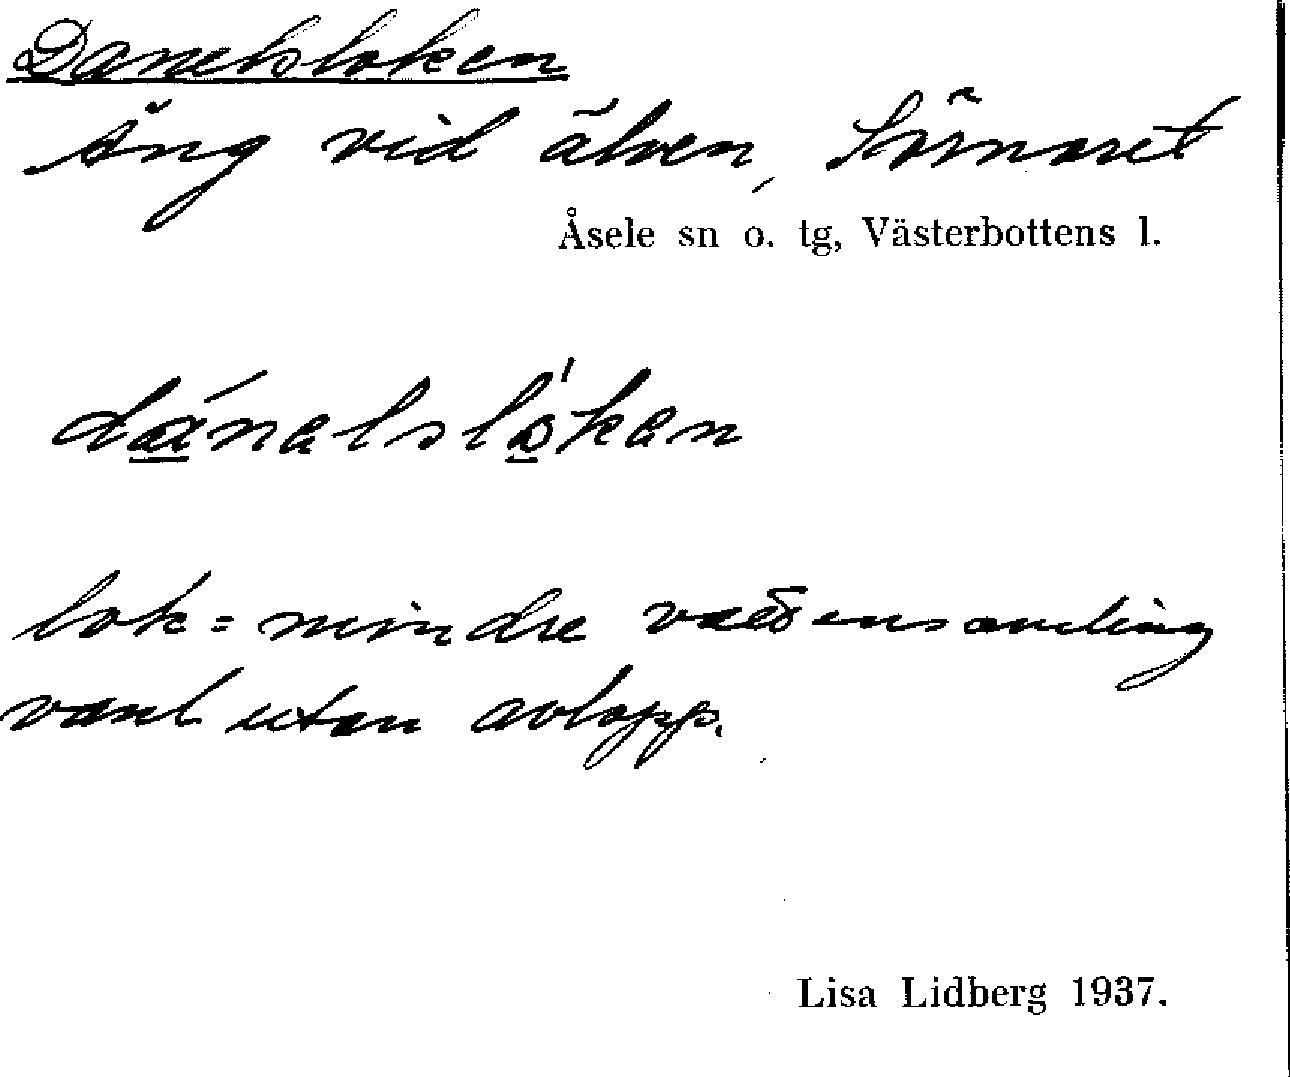 Danelsloken
Äng vid älven, Sörnoret
Åsele sn o. tg, Västerbottens l.
dánalslókan
lok = mindre vattensamling
vanl utan avlopp.
Lisa Lidberg 1937.